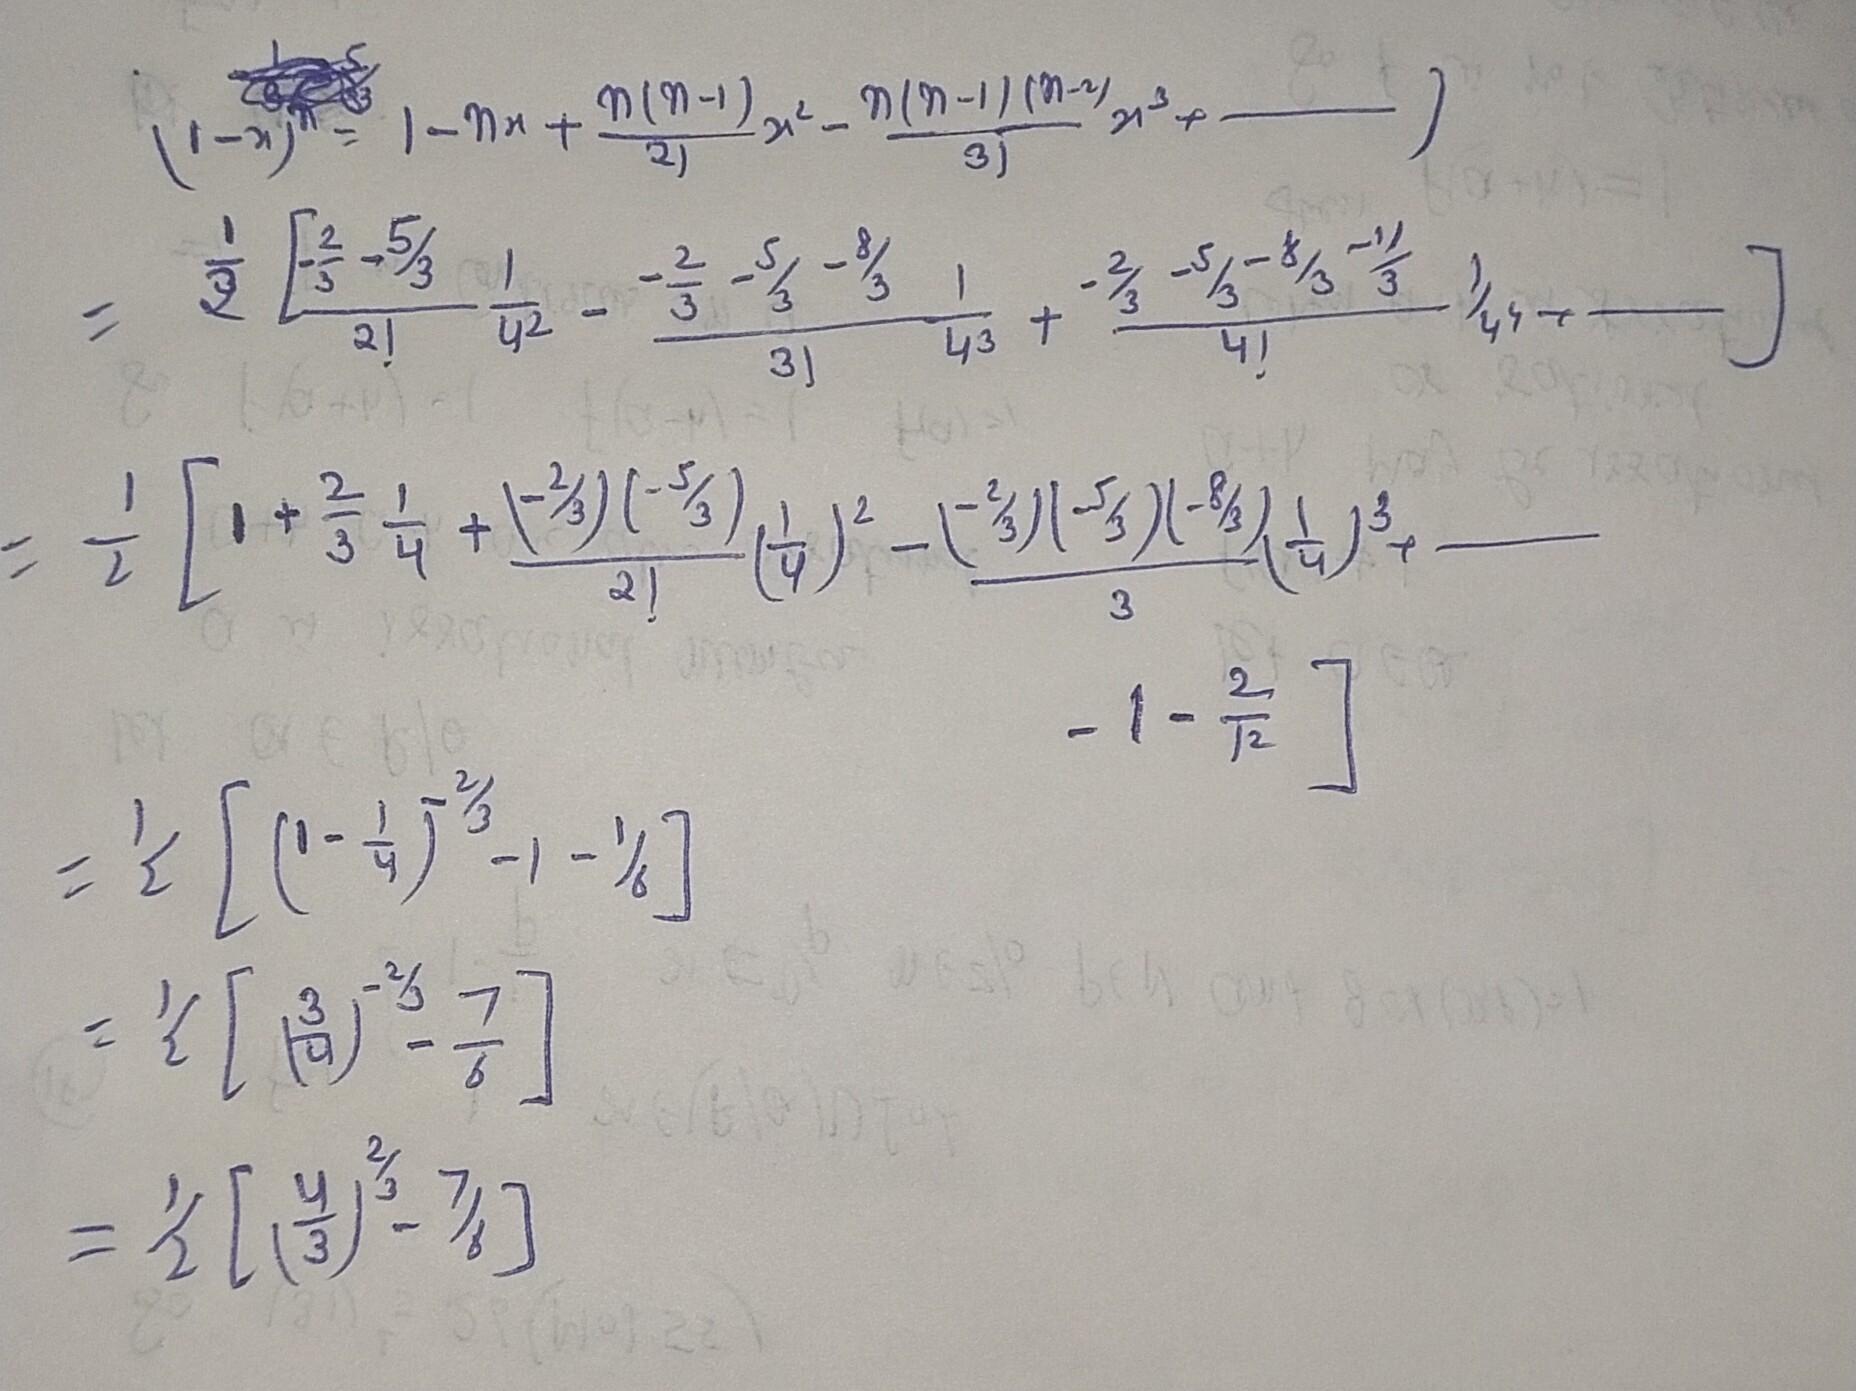 (1-x)^n = 1 - nx + n(n-1)/2! x² - n(n-1)(n-2)/3! x³ + ——— )
= 1/2 [ -2/3 -5/3 / 2! 1/4² - -2/3 -5/3 -8/3 / 3! 1/4³ + -2/3 -5/3 -8/3 -11/3 / 4! 1/4⁴ + ——— ]
= 1/2 [ 1 + 2/3 1/4 + (-2/3)(-5/3)/2! (1/4)² - (-2/3)(-5/3)(-8/3)/3 (1/4)³ + ———
- 1 - 2/12 ]
= 1/2 [ (1 - 1/4)^-2/3 - 1 - 1/6 ]
= 1/2 [ (3/4)^-2/3 - 7/6 ]
= 1/2 [ (4/3)^2/3 - 7/6 ]